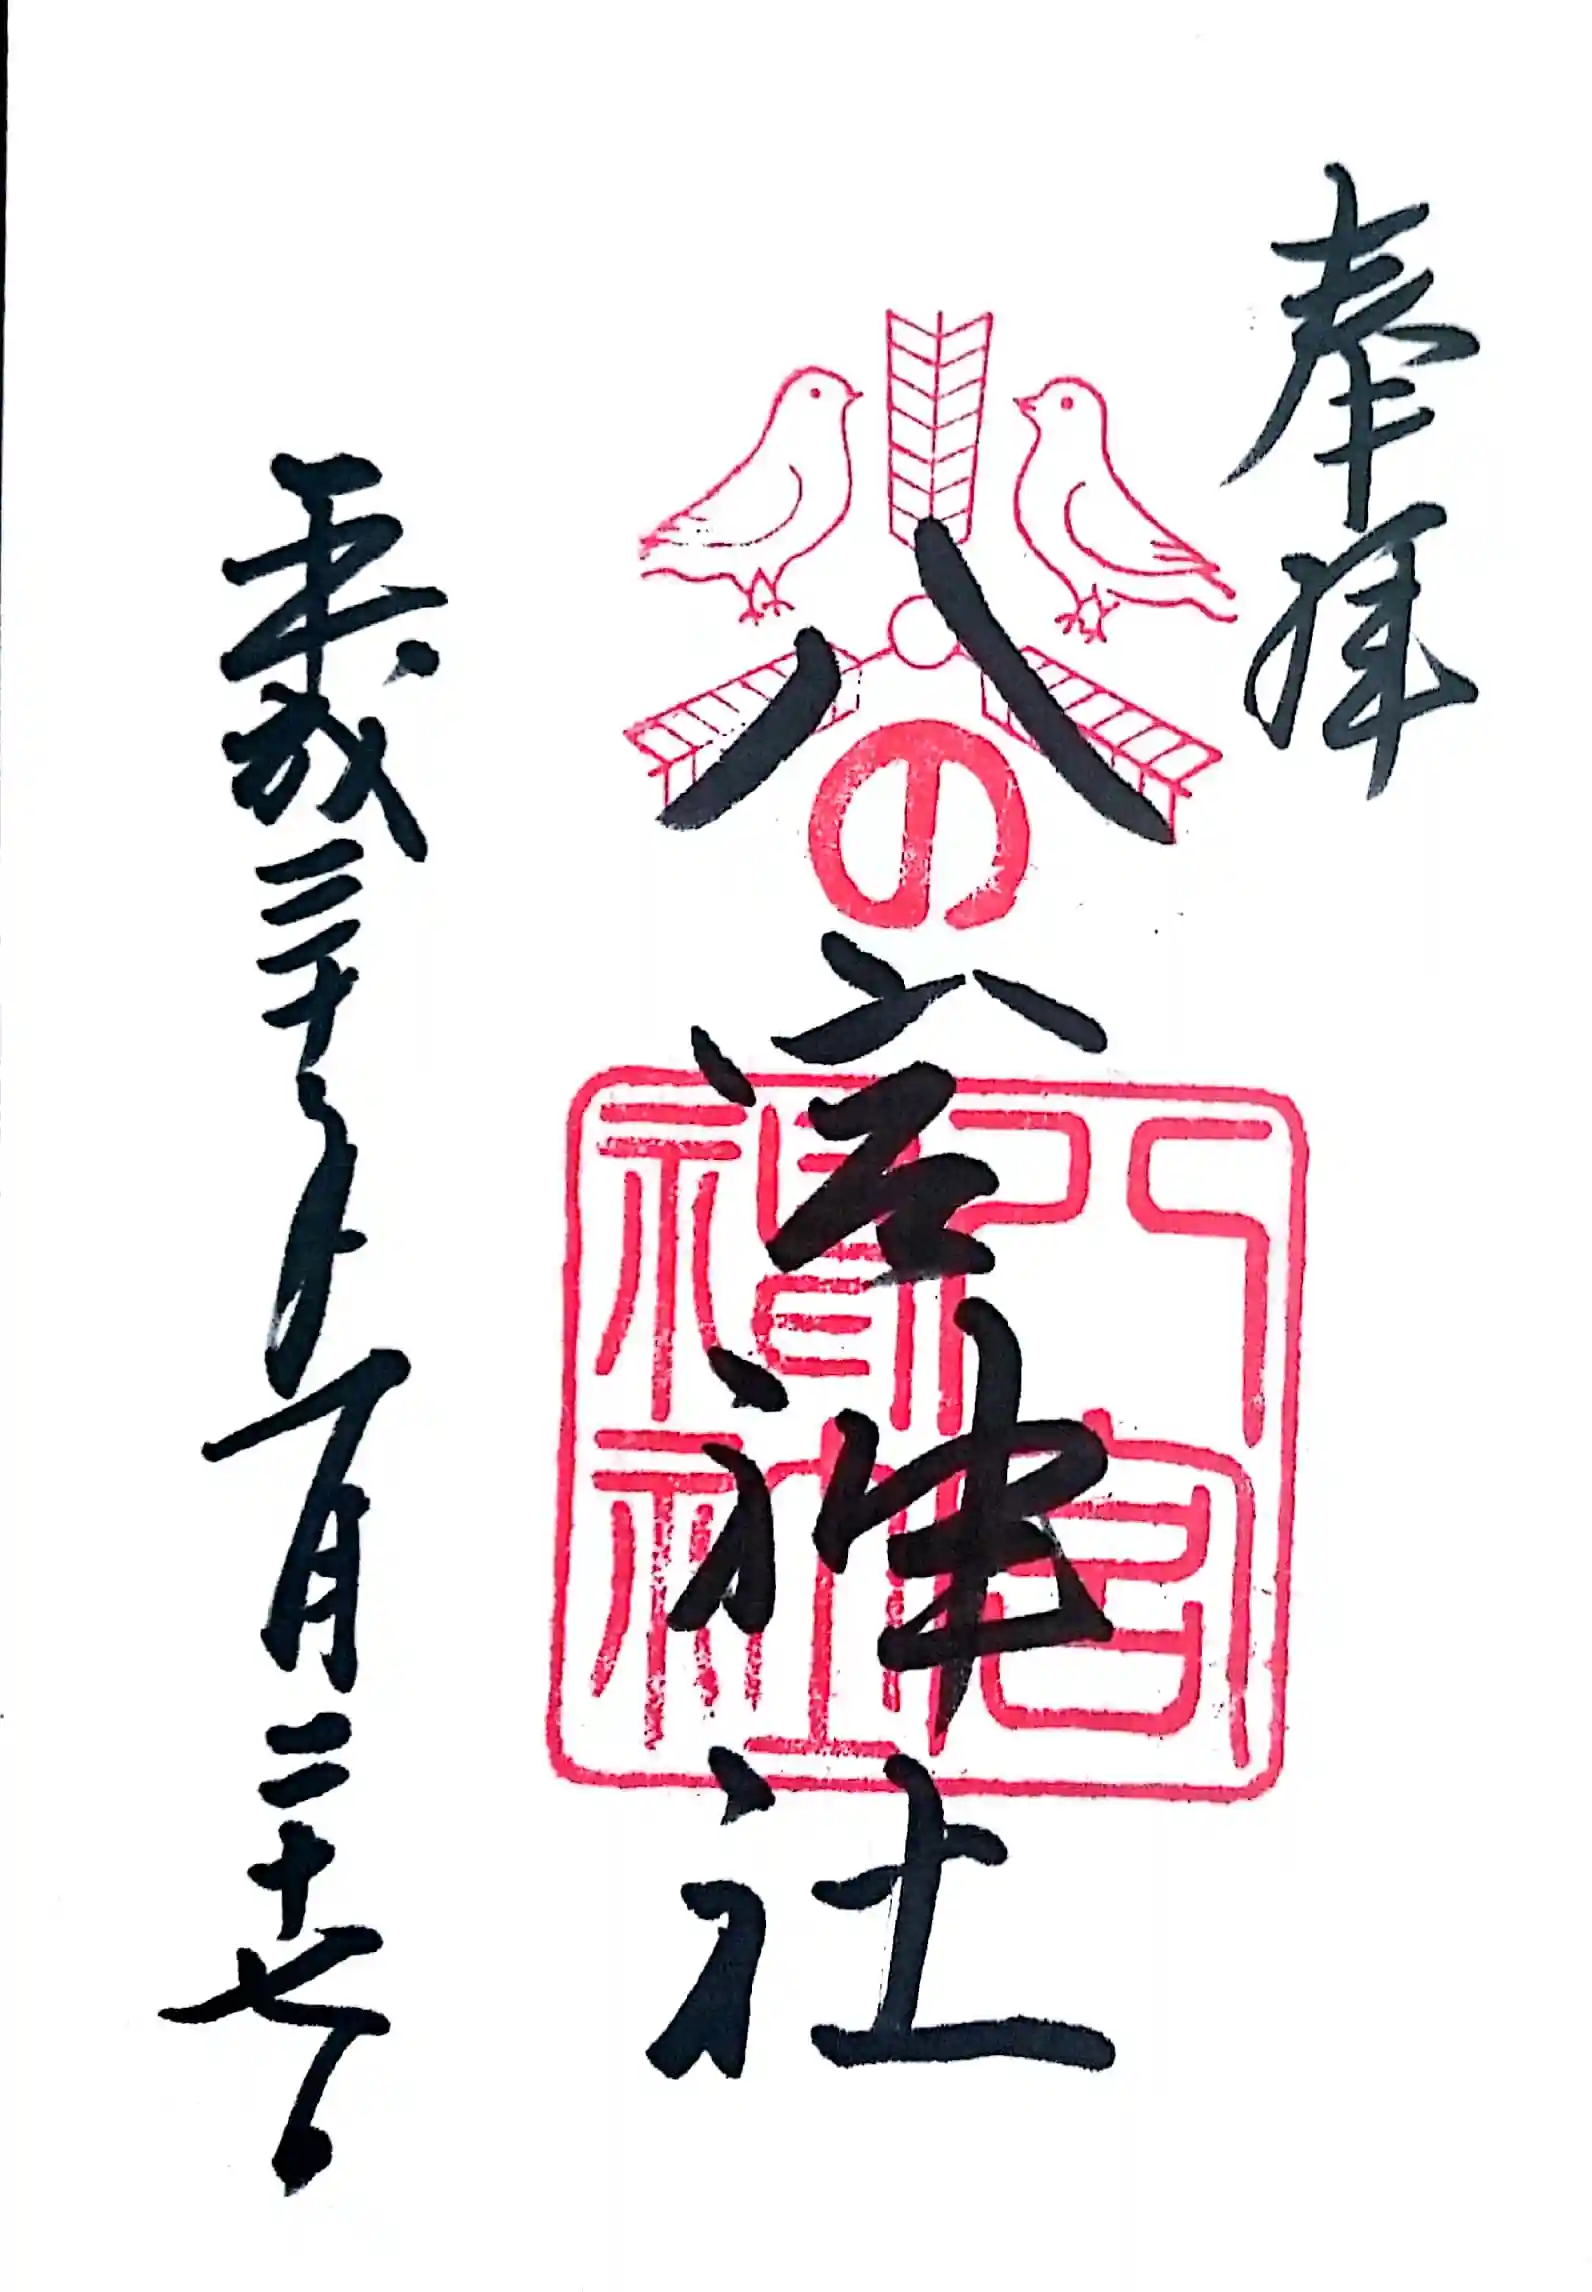 奉拝
の
八宮神社
八宮神社
平成三十年 月二十七日